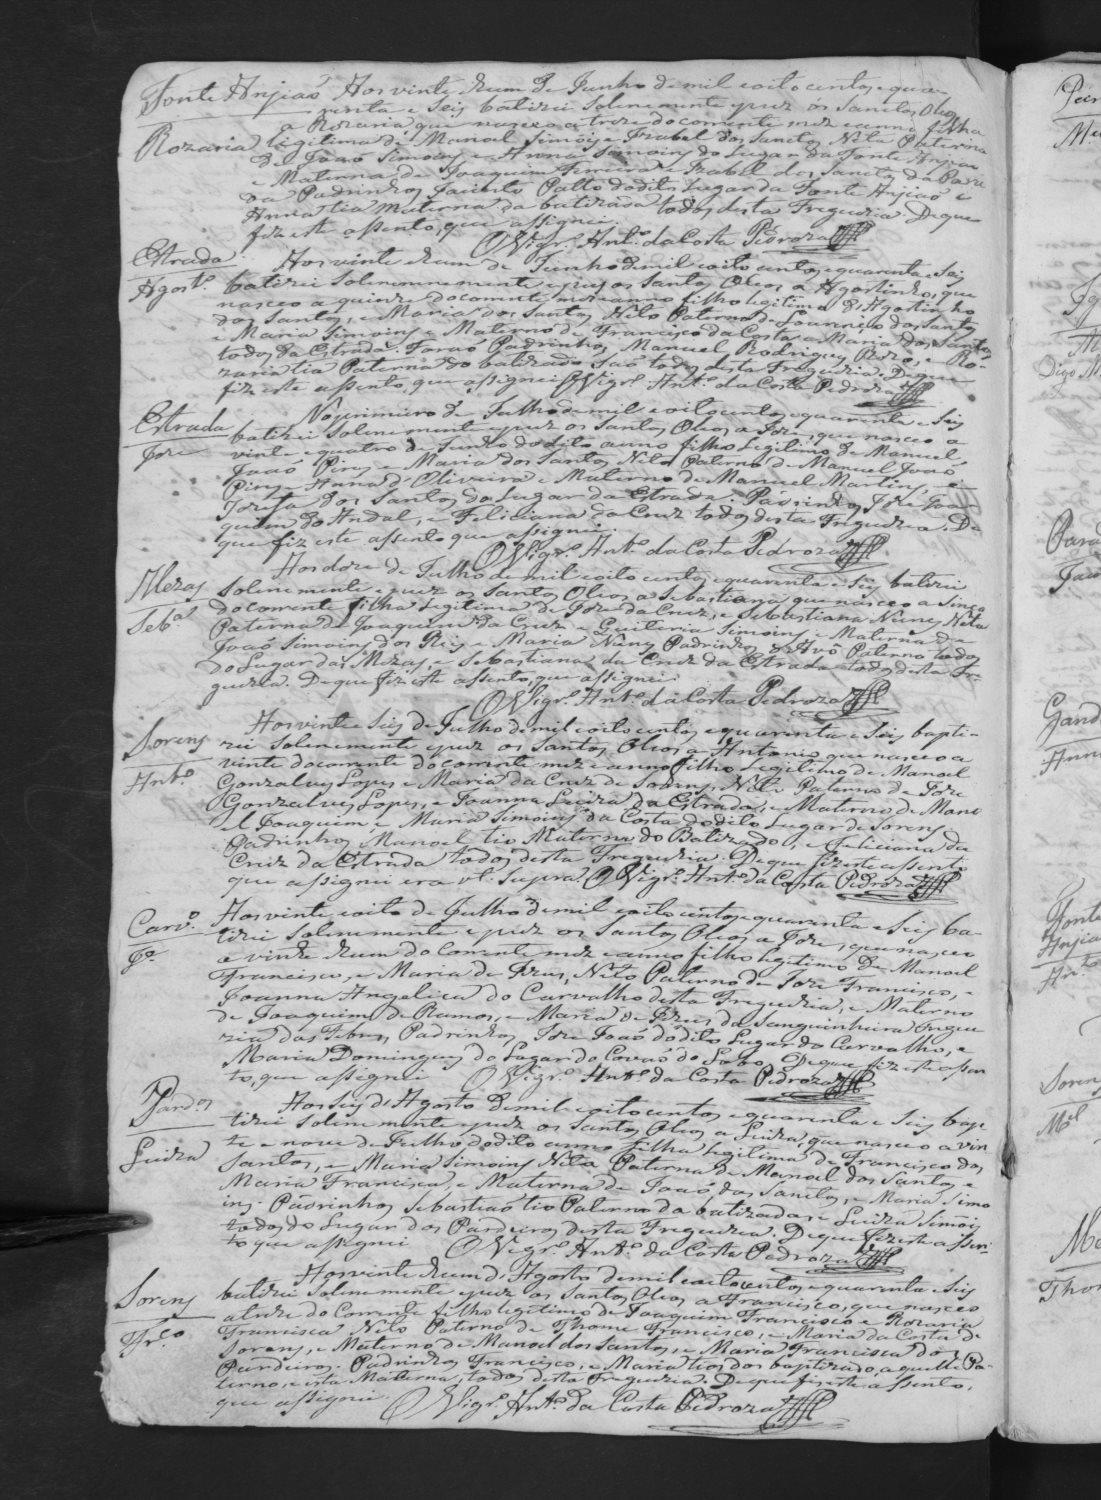 Fonte Anjiaó Aos vinte hum de Junho de mil eoito centos, equa-
renta e Seis batizei Solenemente epuz os Santos Oleos
a Rozaria, que nasceo a treze do corrente mez e anno filha
Rozaria legitima de Manoel Simois e Izabel dos Santos Neta Paterna
de Joaó Simoins e Anna Simoins do Lugar da Fonte Anjiaó
e Materna de Joaquim Ferreira e Izabel dos Santos da
Padrinhos Jacinto Patto do dito Lugar da Fonte Anjiaó e
Anna tia Materna da batizada todos desta Freguezia. De que
fiz este assento, que assignei.
O Vigr.º Ant.º da Costa Pedroza
Estrada Aos vinte ehum de Junho demil eoito centos equarenta e Seis
Agost.º batizei Solenemente epuz os Santos Oleos a Agostinho, que
nasceo a quinze do corrente mez eanno filho legitimo d'Agostinho
dos Santos, e Maria dos Santos Neto Paterno de Lourenço dos Santos
e Maria Simoins e Materno de Francisco da Costa e Maria dos Santos
todos da Estrada. Foraó Padrinhos Manuel Rodrigues Pedro, e Ro-
zaria tia Paterna do batizado Saó todos desta Freguezia. De que
fiz este assento, que assignei O Vigr.º Ant.º da Costa Pedroza
Estrada No primeiro de Julho de mil eoito centos equarenta e Seis
Joze batizei Solenemente epuz os Santos Oleos a Joze, que nasceo a
vinte equatro de Junho do dito anno filho Legitimo de Manuel
Joaó Pires e Maria dos Santos, Neto Paterno de Manuel Joaó
Pires e Anna d'Oliveira e Materno de Manuel Martins, e
Josefa dos Santos do Lugar da Estrada. Padrinhos Joze Joa-
quim do Andal, e Feliciana da Cruz todos desta Freguezia. De
que fiz este assento que assignei.
O Vigr.º Ant.º da Costa Pedroza
Mezas Aos doze de Julho de mil eoito centos equarenta e Seis batizei
Seb.ª Solenemente epuz os Santos Oleos a Sebastiana que nasceo a Sinco
do corrente filha Legitima de Joze da Cruz, e Sebastiana Nunes, Neta
Paterna de Joaquim da Cruz e Guiteria Simoins, e Materna de
Joaó Simoins dos Reis e Maria Nunes Padrinhos o Avô Paterno todos
do Lugar das Mezas, e Sebastiana da Cruz da Estrada todos desta Fre-
guezia. De que fiz este assento, que assignei.
O Vigr.º Ant.º da Costa Pedroza
Sorens Aos vinte e Seis de Julho de mil eoito centos equarenta e Seis bapti-
Ant.º zei Solenemente epuz os Santos Oleos a Antonio que nasceo a
vinte do corrente do corrente mez eanno filho Legitimo de Manoel
Gonzalves Lopes e Maria da Cruz de Sorens, Neto Paterno de Joze
Gonzalves Lopes, e Joanna Luiza da Estrada, e Materno de Mano-
el Joaquim, e Maria Simoins da Costa do dito Lugar de Sorens
Padrinhos Manoel tio Materno do Batizado, e Feliciana da
Cruz da Estrada todos desta Freguezia. De que fiz este assento
que assignei era ut Supra. O Vigr.º Ant.º da Costa Pedroza
Carv.º Aos vinte eoito de Julho de mil eoito centos equarenta e Seis ba-
J.e tizei Solenemente epuz os Santos Oleos a Joze, que nasceo
a vinte ehum do corrente mez eanno filho legitimo de Manoel
Francisco, e Maria de Jezus, Neto Paterno de Joze Francisco, e
Joanna Angelica do Carvalho desta Freguezia, e Materno
de Joaquim de Ramos, e Maria de Jezus da Sanguinheira Fregue-
zia das Febres, Padrinhos Joze Joaó do dito Lugar do Carvalho, e
Maria Domingues do Lugar do Covaó do Lobo, De que fiz este assen-
to, que assignei O Vigr.º Ant.º da Costa Pedroza
Pardos Aos Seis d'Agosto demil eoito centos equarenta e Seis bap-
Luiza tizei Solenemente epuz os Santos Oleos a Luiza, que nasceo a vin-
te e nove de Julho do dito anno filha Legitima de Francisco dos
Santos, e Maria Simoins Neta Paterna de Manoel dos Santos e
Maria Francisca, e Materna de Joaó dos Santos, e Maria Simo-
ins. Padrinhos Sebastiaó tio Paterno da batizada e Luiza Simois
todos do Lugar dos Pardeiros desta Freguezia. De que fiz este assen-
to que assignei O Vigr.º Ant.º da Costa Pedroza
Sorens Aos vinte ehum d'Agosto demil eoito centos equarenta e Seis
Fr.co batizei Solenemente epuz os Santos Oleos a Francisco, que nasceo
atreze do Corrente filho legitimo de Joaquim Francisco e Rozaria
Francisca Neto Paterno de Thome Francisco, e Maria da Costa de
Sorens, e Materno de Manoel dos Santos, e Maria Francisca dos
Pardeiros. Padrinhos Francisco, e Maria tios dos baptizado, aquelle Pa-
terno, e esta Materna, todos desta Freguezia. De que fiz este assento,
que assignei O Vigr.º Ant.º da Costa Pedroza